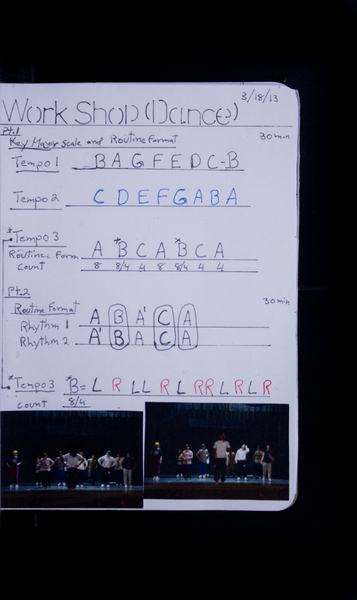 3/18/13
Work Shop (Dance)
Pt.1
Key Mayor Scale and Routine Format
30 min
Tempo 1 B A G F E D C-B
Tempo 2 C D E F G A B A
*Tempo 3
Routine: Form A *B C A *B C A
Count 8 8/4 4 8 8/4 4 4
Pt.2
30 min
Routine Format
Rhythm 1 A B A' C A
Rhythm 2 A' B A C A
*Tempo 3 *B = L R L L R L R R L R L R
Count 8/4